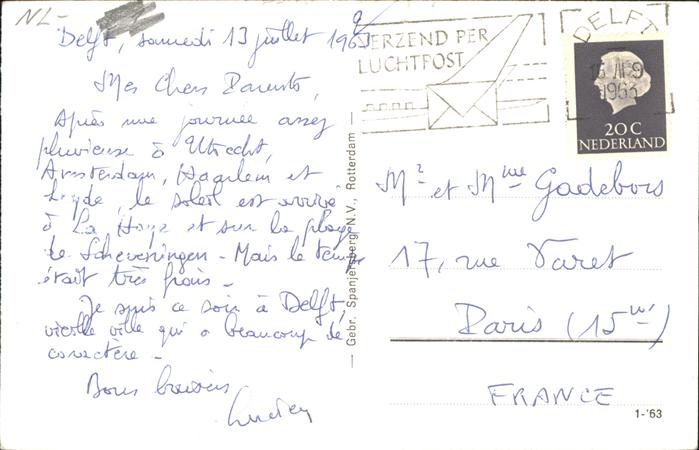 NL-
Delft, samedi 13 juillet 1963
Mes Chers Parents,
Après une journée assez
pluvieuse à Utrecht,
Amsterdam, Haarlem et
Leyde, le soleil est arrivé
à La Haye et sur la plage
de Scheveningen - Mais le temps
était très frais -
Je suis ce soir à Delft,
vieille ville qui a beaucoup de
caractère -
Bons baisers
Lucien
— Gebr. Spanjersberg N.V., Rotterdam —
VERZEND PER
LUCHTPOST
DELFT
1963
20 C
NEDERLAND
Mr et Mme Gadebois
17, rue Varet
Paris (15me)
FRANCE
1-'63